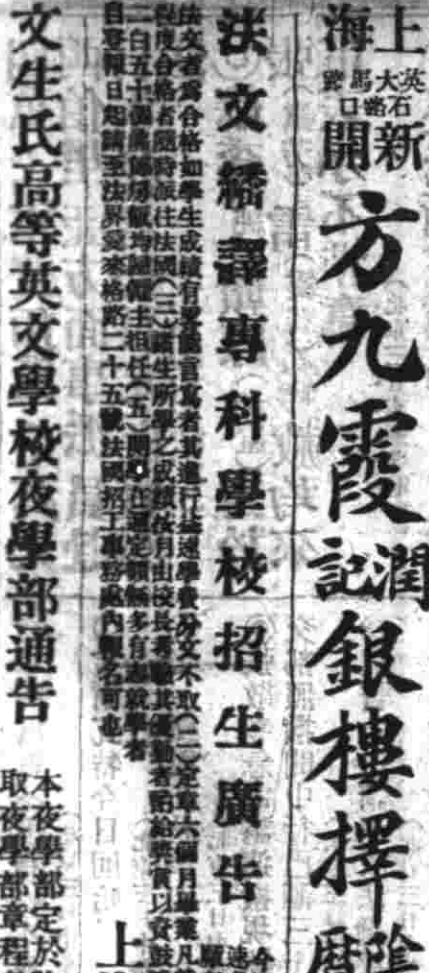 上海
英大馬路
石路口
新開
方九霞
潤記
銀樓擇
陰曆
法文繙譯專科學校招生廣告
今
速
願
法文者為合格如學生成績有
言寫者其進行益速學費分文不取(二)定章六個月畢業凡
程度合格者隨時派往法國(三)諸生所學之成績按月由校長考驗其優勤者酌給獎賞以資鼓
二百五十
均歸僱主担任(五)開學在邇定額無多有志就學者
自登報日起請至法界愛來格路二十五號法國招工事務處內報名可也
上
文生氏高等英文學校夜學部通告
本夜學部定於
取夜學部章程